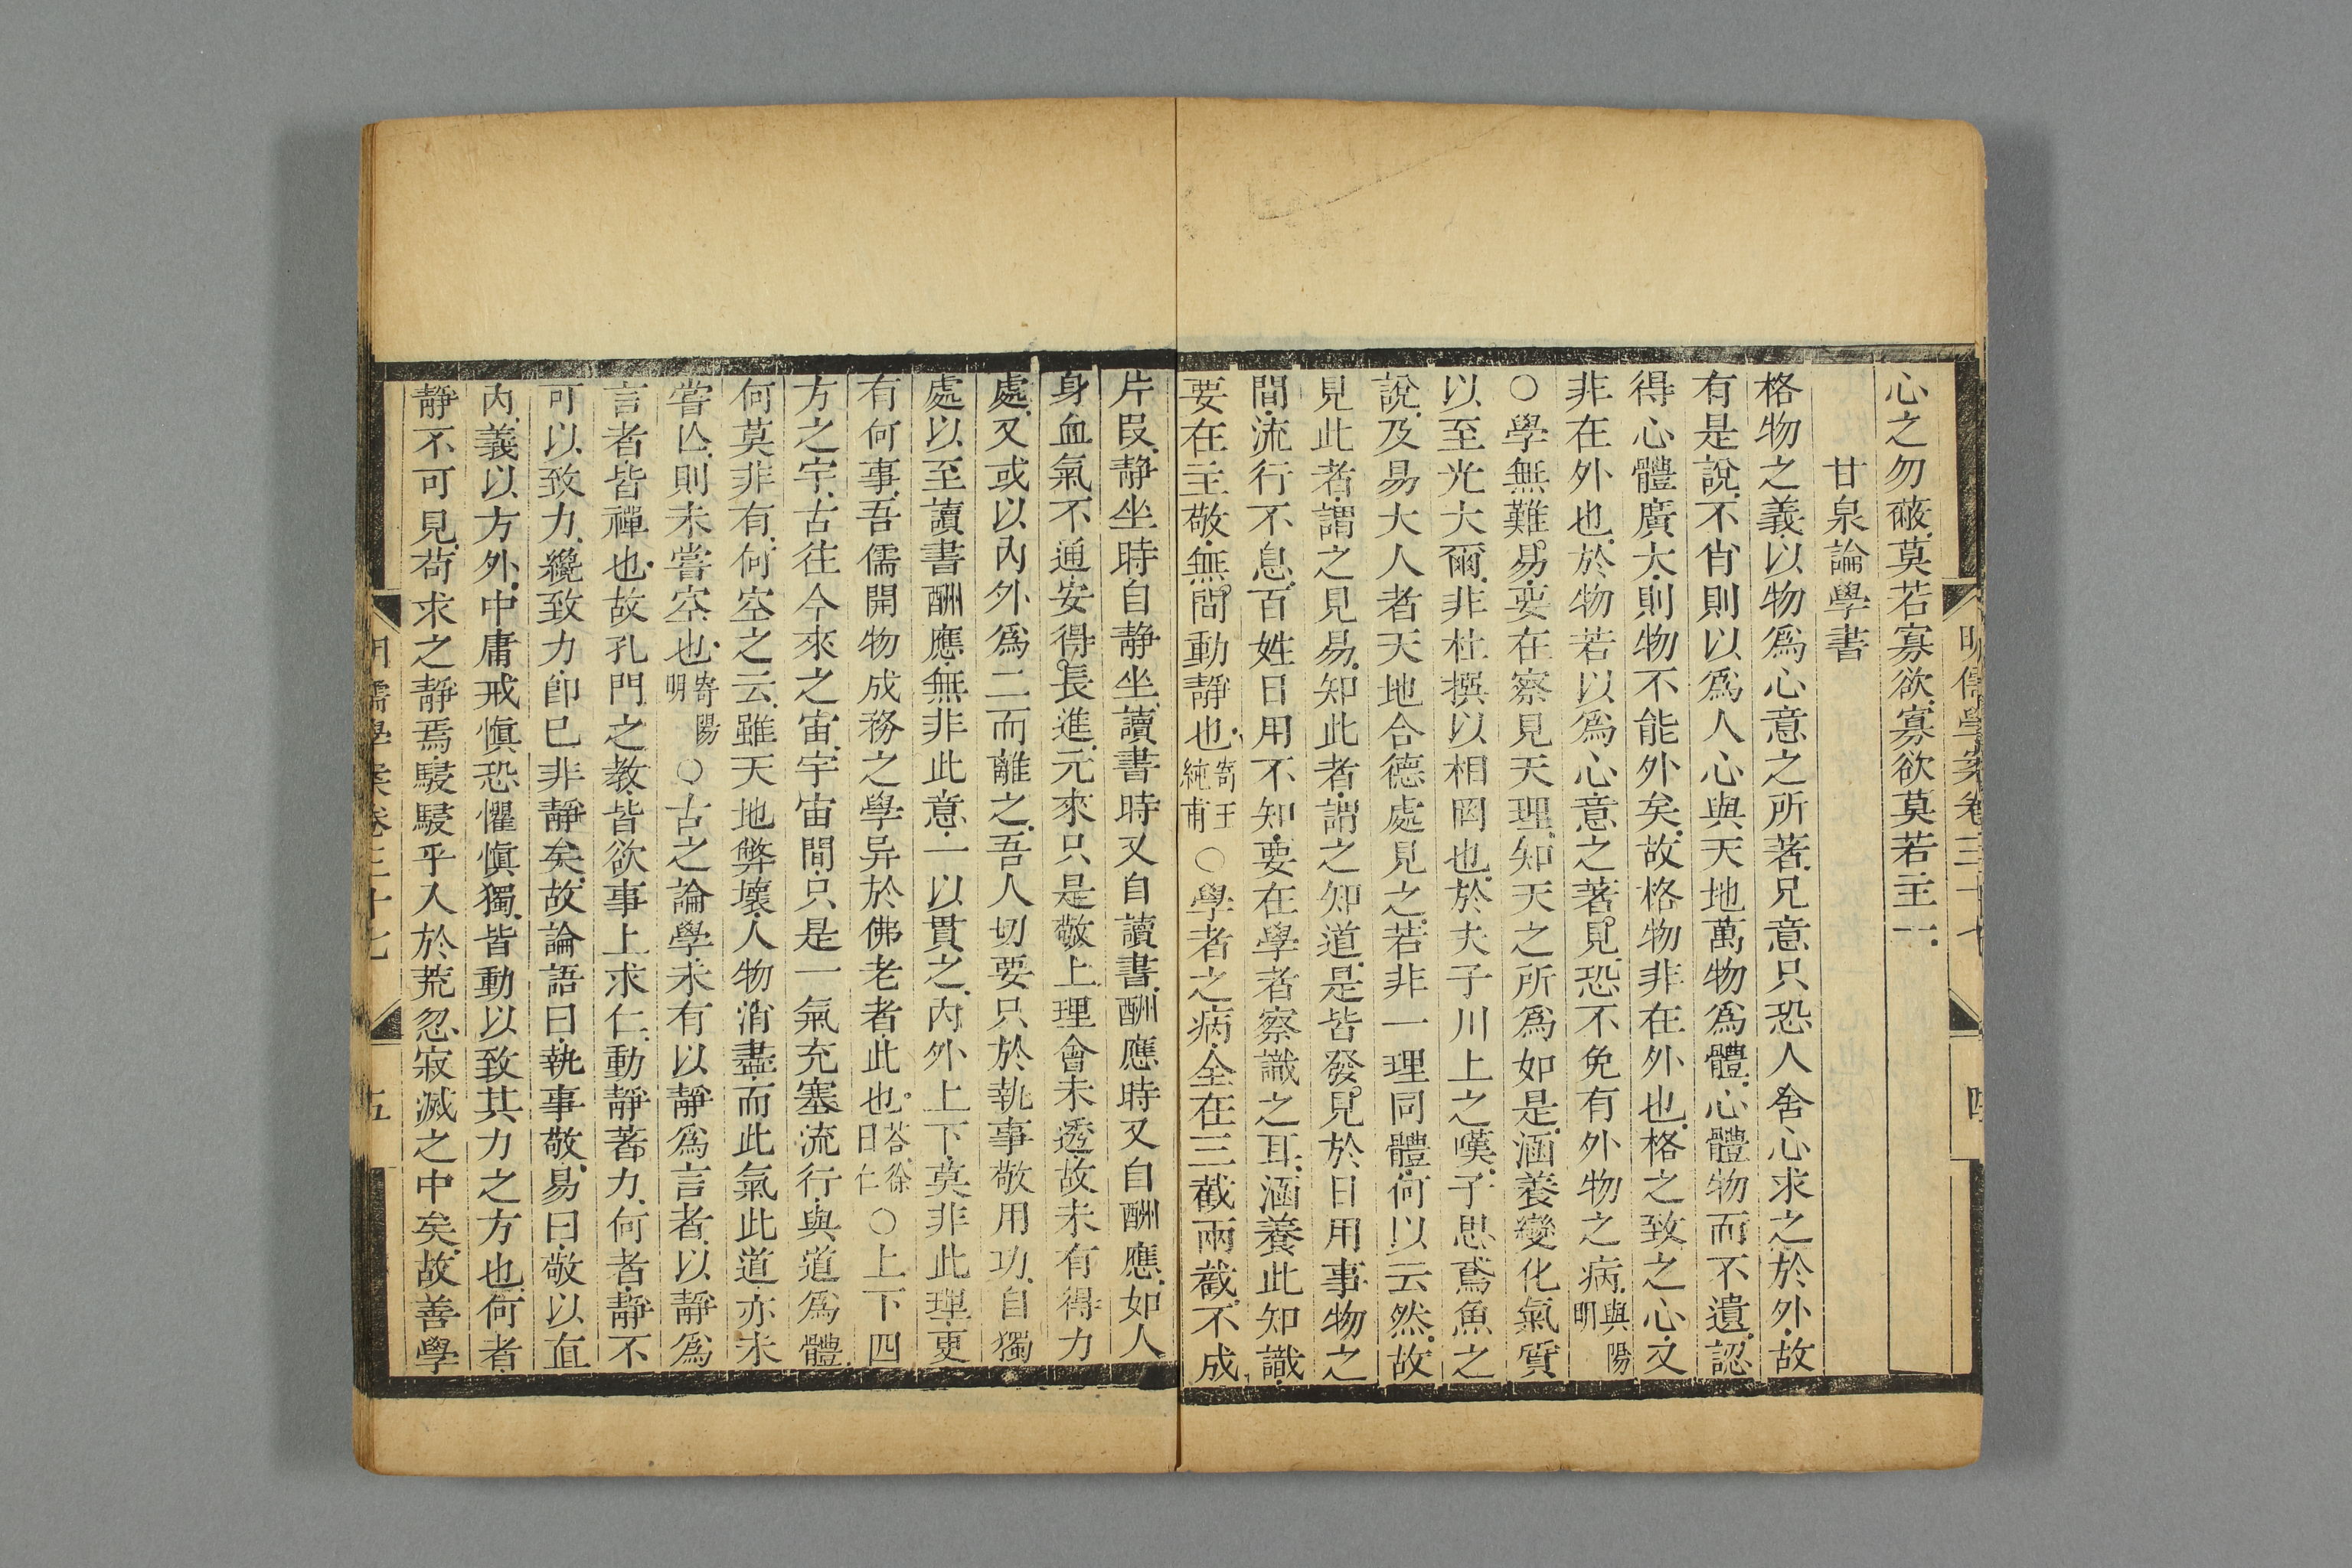 明儒學案卷三十七
四
心之勿蔽莫若寡欲寡欲莫若主一
甘泉論學書
格物之義以物爲心意之所著兄意只恐人舍心求之於外故
有是說不肖則以爲人心與天地萬物爲體心體物而不遺認
得心體廣大則物不能外矣故格物非在外也格之致之心又
非在外也於物若以爲心意之著見恐不免有外物之病與陽明
○學無難易要在察見天理知天之所爲如是涵養變化氣質
以至光大爾非杜撰以相罔也於夫子川上之嘆子思鳶魚之
說及易大人者天地合德處見之若非一理同體何以云然故
見此者謂之見易知此者謂之知道是皆發見於日用事物之
間流行不息百姓日用不知要在學者察識之耳涵養此知識
要在主敬無間動靜也寄王純甫○學者之病全在三截兩截不成
片段靜坐時自靜坐讀書時又自讀書酬應時又自酬應如人
身血氣不通安得長進元來只是敬上理會未透故未有得力
處又或以內外爲二而離之吾人切要只於執事敬用功自獨
處以至讀書酬應無非此意一以貫之內外上下莫非此理更
有何事吾儒開物成務之學异於佛老者此也荅徐曰仁○上下四
方之宇古往今來之宙宇宙間只是一氣充塞流行與道爲體
何莫非有何空之云雖天地弊壞人物消盡而此氣此道亦未
嘗亾則未嘗空也寄陽明○古之論學未有以靜爲言者以靜爲
言者皆禪也故孔門之教皆欲事上求仁動靜著力何者靜不
可以致力纔致力卽已非靜矣故論語曰執事敬易曰敬以直
內義以方外中庸戒愼恐懼愼獨皆動以致其力之方也何者
靜不可見茍求之靜焉駸駸乎入於荒忽寂滅之中矣故善學
明儒學案卷三十七
五